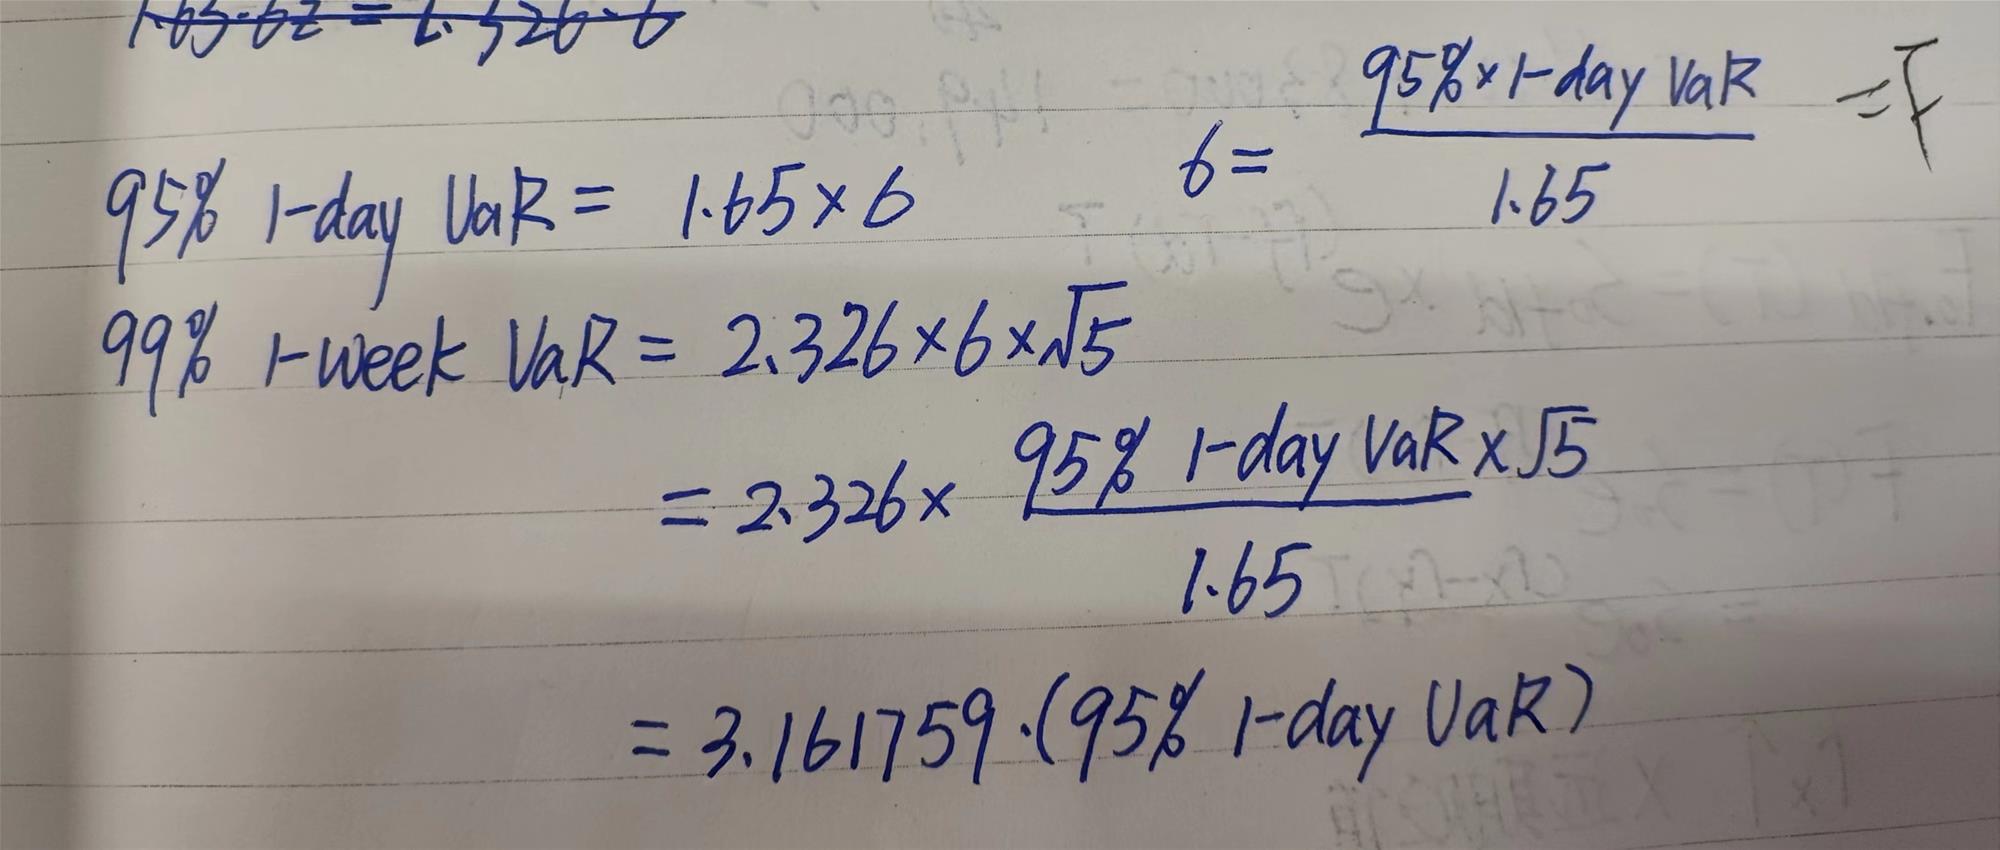 1.65·6z = 2.326·6
95% × 1-day VaR
6 = ———————— = F
1.65
95% 1-day VaR = 1.65 × 6
99% 1-week VaR = 2.326 × 6 × √5
= 2.326 × 95% 1-day VaR × √5
1.65
= 3.161759·(95% 1-day VaR)